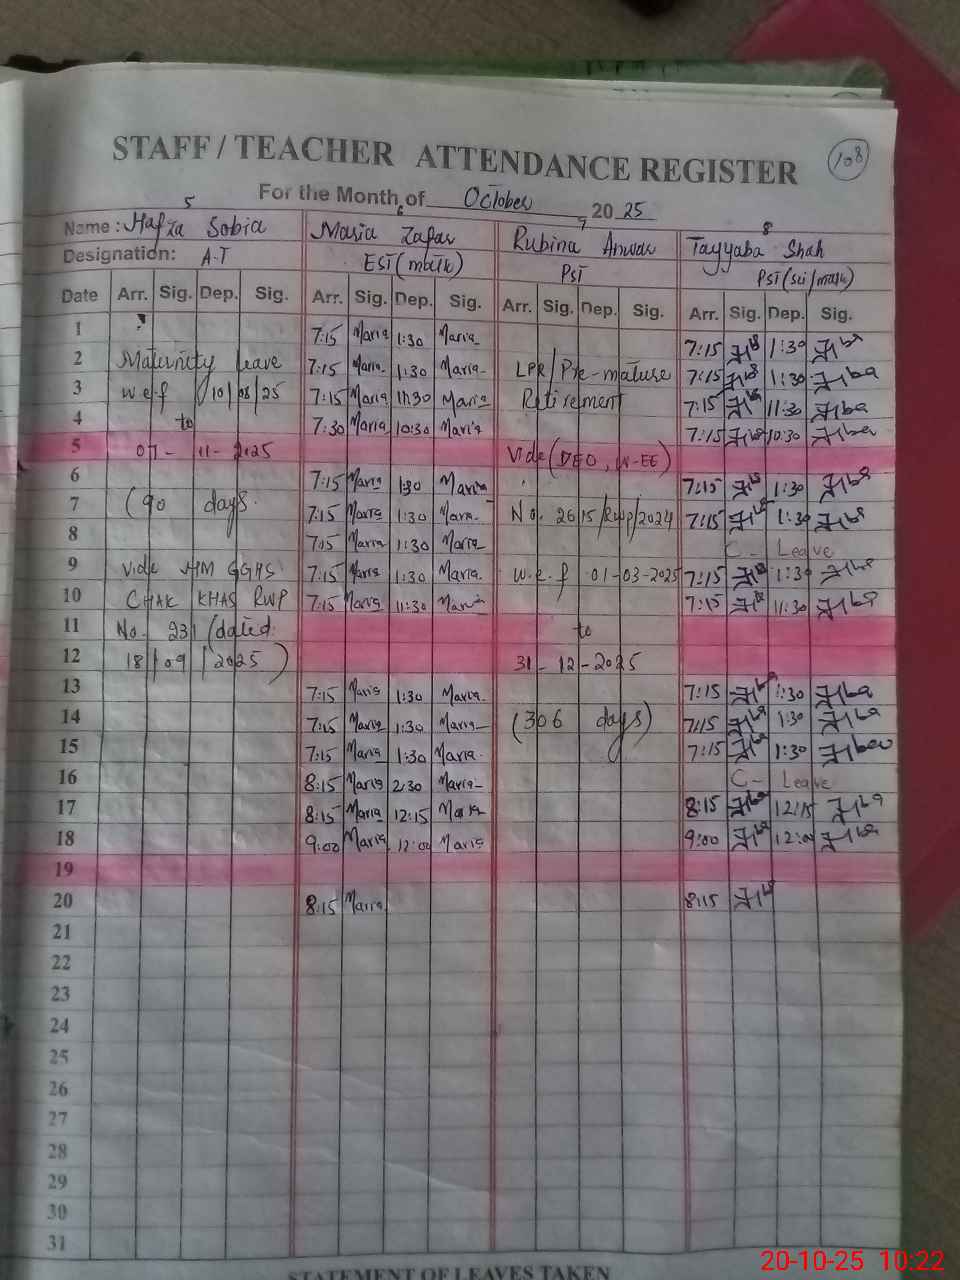 STAFF / TEACHER ATTENDANCE REGISTER 108
For the Month of October 2025
5 6 7 8
Name: Hafza Sobia Maria Zafar Rubina Anwar Tayyaba Shah
Designation: A-T EST (math) PST PST (sci/math)
Date Arr. Sig. Dep. Sig. Arr. Sig. Dep. Sig. Arr. Sig. Dep. Sig. Arr. Sig. Dep. Sig.
1 7:15 Maria 1:30 Maria 7:15 1:30
2 Maternity leave 7:15 Maria 1:30 Maria LPR/Pre-mature 7:15 1:30
3 w.e.f 10/08/25 7:15 Maria 11:30 Maria Retirement 7:15 11:30
4 to 7:30 Maria 10:30 Maria 7:15 10:30
5 07-11-2025 Vide (DEO, W-EE)
6 7:15 Maria 1:30 Maria 7:15 1:30
7 (90 days. 7:15 Maria 1:30 Maria No. 2615/RWP/2024 7:15 1:30
8 7:15 Maria 1:30 Maria C- Leave
9 Vide HM GGHS 7:15 Maria 1:30 Maria w.e.f 01-03-2025 7:15 1:30
10 CHAK KHAS RWP 7:15 Maria 11:30 Maria 7:15 11:30
11 No. 231 (dated: to
12 18/09/2025) 31-12-2025
13 7:15 Maria 1:30 Maria 7:15 1:30
14 7:15 Maria 1:30 Maria (306 days) 7:15 1:30
15 7:15 Maria 1:30 Maria 7:15 1:30
16 8:15 Maria 2:30 Maria C- Leave
17 8:15 Maria 12:15 Maria 8:15 12:15
18 9:00 Maria 12:00 Maria 9:00 12:00
19
20 8:15 Maria 8:15
21
22
23
24
25
26
27
28
29
30
31
STATEMENT OF LEAVES TAKEN
20-10-25 10:22